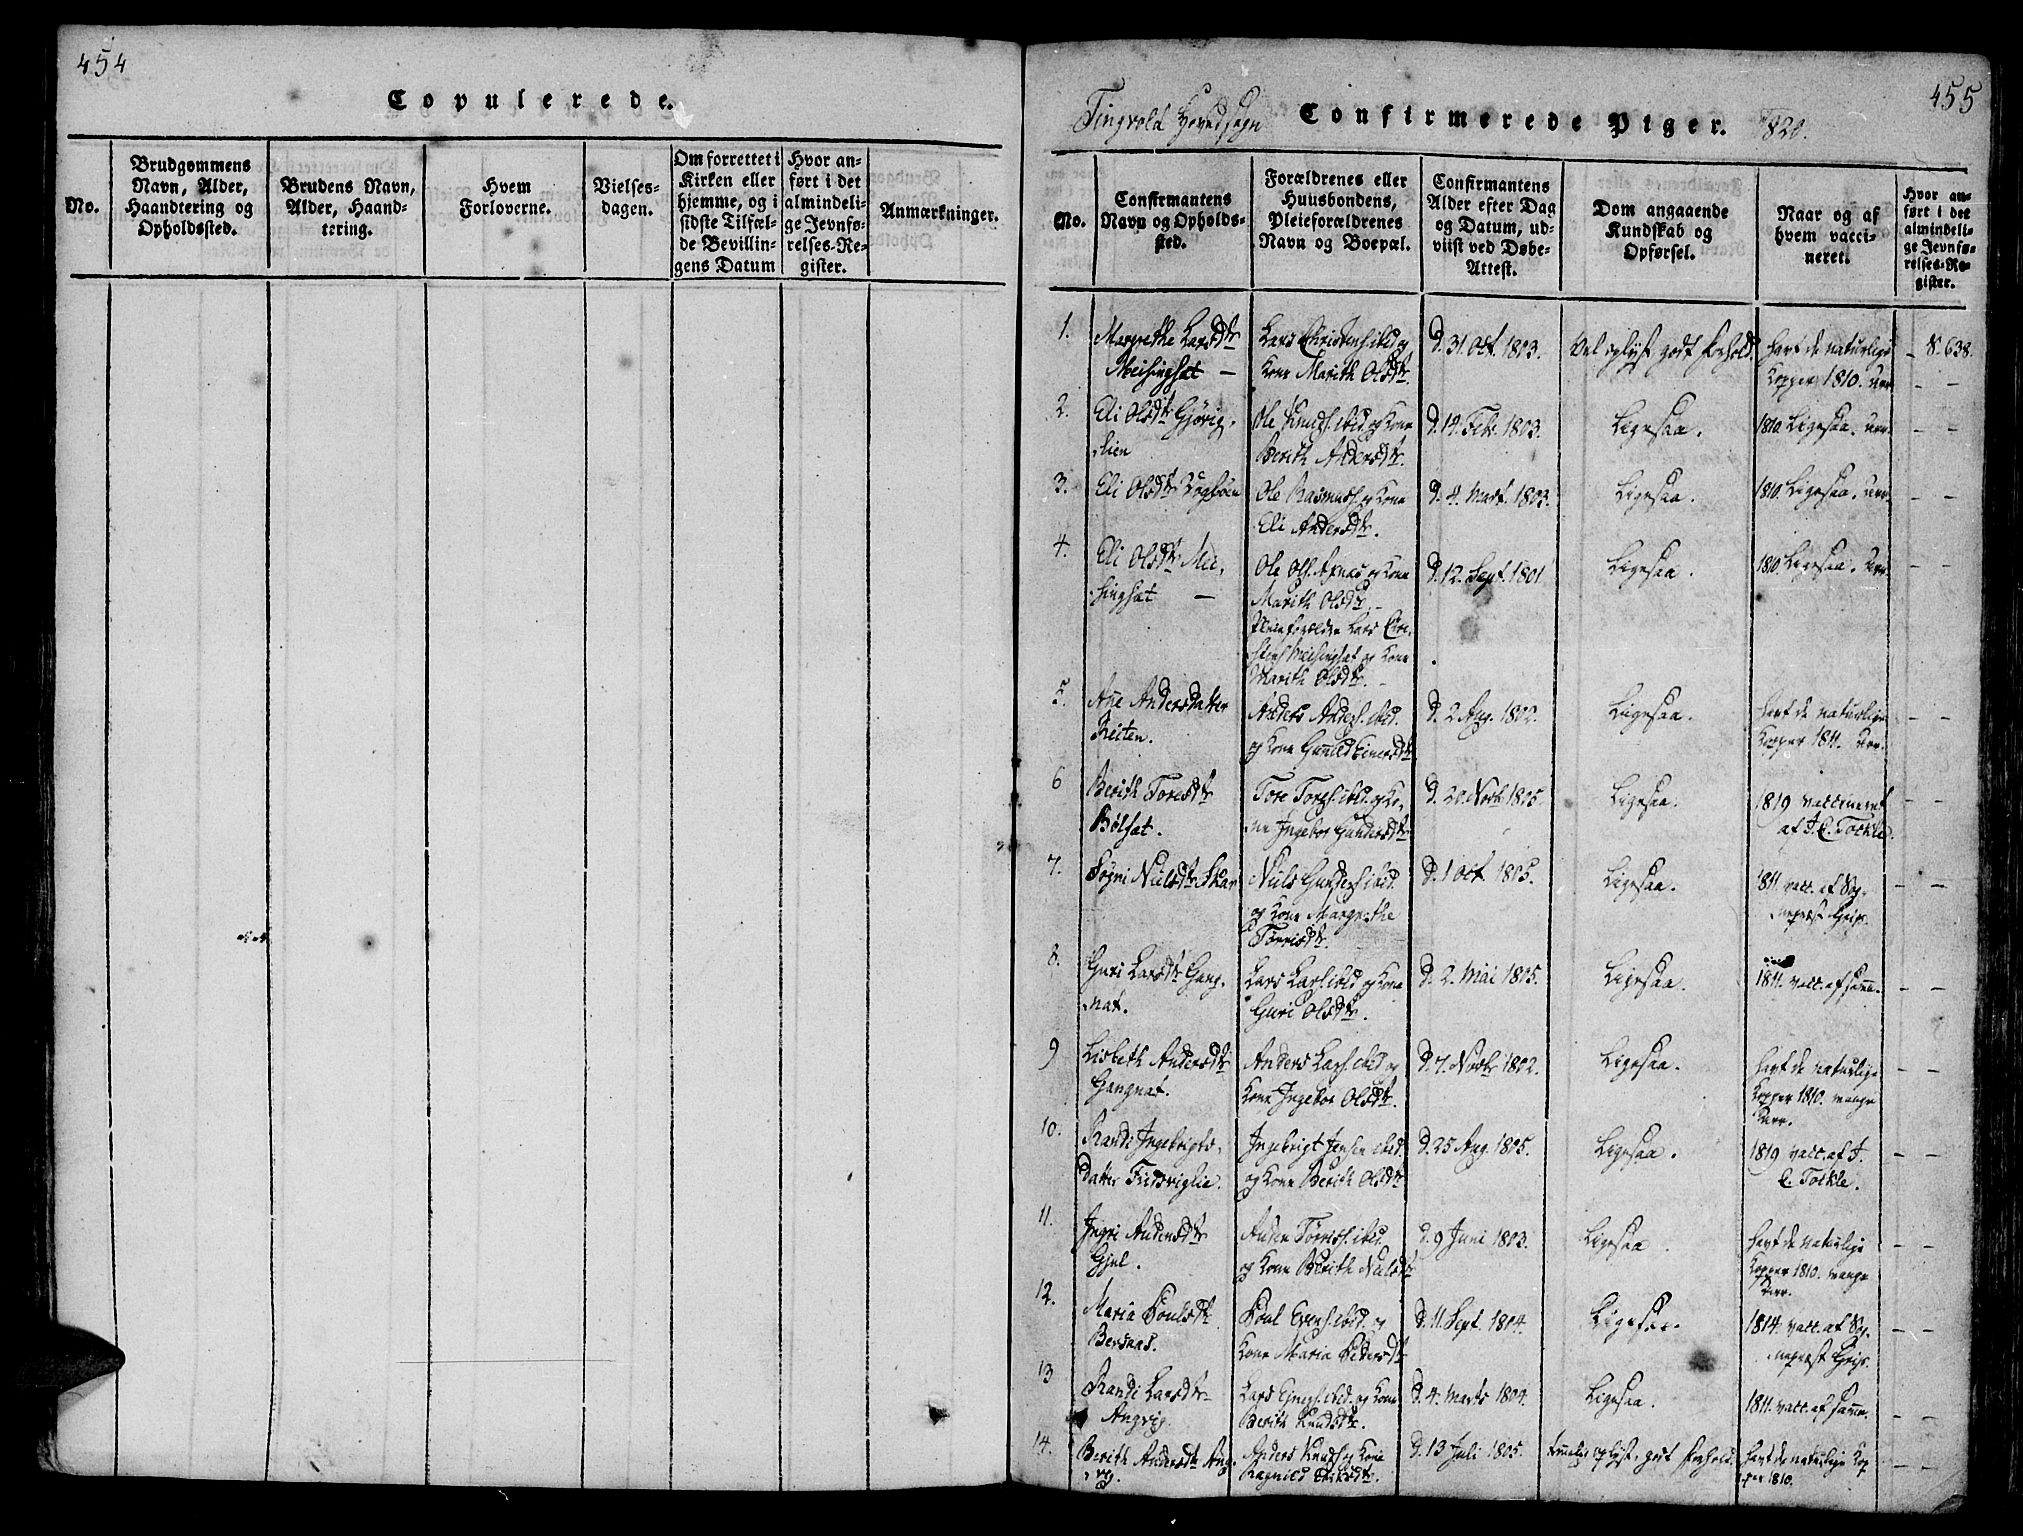 454
Copulerede.
No.
Brudgommens
Navn, Alder,
Haandtering og
Opholdssted.
Brudens Navn,
Alder, Haand-
tering.
Hvem
Forloverne.
Vielses-
dagen.
Om forrettet i
Kirken eller
hjemme, og i
sidste Tilfæl-
de Bevillin-
gens Datum
Hvor an-
ført i det
almindeli-
ge Jevnfø-
relses-Re-
gister.
Anmærkninger.
455
Tingvold Hovedsogn Confirmerede Piger. 1820.
No.
Confirmantens
Navn og Opholds-
sted.
Forældrenes eller
Huusbondens,
Pleieforældrenes
Navn og Boepæl.
Confirmantens
Alder efter Dag
og Datum, ud-
viist ved Døbe-
Attest.
Dom angaaende
Kundskab og
Opførsel.
Naar og af
hvem vacci-
neret.
Hvor an-
ført i det
almindeli-
ge Jevnfø-
relses-Re-
gister.
1.
Margrethe Larsdtr
Meisingsat —
Lars Christens. ibid og
Kone Marith Olsdtr
d. 31 Oct. 1803.
Vel oplyst godt Forhold.
havt de naturlige
Kopper 1810.
— S. 638.
— —
2.
Eli Olsdtr Gjörig-
lien
Ole Knuds. ibid. og Kone
Berith Andersdtr.
d. 14. Febr. 1803.
Ligesaa.
1810. Ligesaa.
— —
3.
Eli Olsdtr
Ole Rasmus. og Kone
Eli Andersdtr.
d. 4. Mart. 1803.
Ligesaa.
1810. Ligesaa.
— —
4.
Eli Olsdtr Mei-
singsat —
Ole Ols. Axnæs og Kone
Marith Olsdtr. —
Pleieforældre Lars Chri-
stens. Meisingsat og Kone
Marith Olsdtr. —
d. 12. Sept. 1801
Ligesaa.
1810. Ligesaa.
— —
5.
Ane Andersdatter
Reiten.
Anders Anders. ibid.
og Kone Gunild Einersdtr
d. 2 Aug. 1802.
Ligesaa.
havt de naturlige
Kopper 1811.
— —
6
Berith Toresdtr
Bölsat.
Tore Tores. ibid. og Ko-
ne Ingebor Gundersdtr
d. 20. Novbr 1805
Ligesaa.
1819 vaccineret
af J. C. Torkle.
— —
7.
Sögni Nielsdtr Skar
Niels Gunders. ibid.
og Kone Margrethe
Törrisdtr.
d. 1 Oct. 1805.
Ligesaa.
1811. vacc. af Sog-
nepræst Grip.
— —
8.
Guri Larsdtr Gang-
nat.
Lars Lars. ibid og Kone
Guri Olsdtr.
d. 2. Mai 1805.
Ligesaa.
1811. vacc. af samme.
— —
9
Lisbeth Andersdtr
Gangnat.
Anders Lars. ibid og
Kone Ingebor Olsdtr.
d. 7. Novbr 1802.
Ligesaa.
havt de naturlige
Kopper 1810. mange
— —
10.
Randi Ingebrigts-
datter
Ingebrigt Jensen ibid.
og Kone Berith Olsdtr
d. 25 Aug. 1805.
Ligesaa.
1819 vacc. af J.
C. Torkle.
— —
11.
Ingri Andersdtr
Gjul.
Anden Törris. ibid.
og Kone Berith Nielsdtr
d. 9 Juni 1803.
Ligesaa.
havt de naturlige
Kopper 1810. mange
— —
12.
Maria Poulsdtr
Bersnæs.
Poul Evens. ibid. og
Kone Maria Pedersdtr
d. 11. Sept. 1804.
Ligesaa.
1814. vacc. af Sog-
nepræst Grip.
— —
13
Randi Larsdtr
Angvig.
Lars ibid. og Kone
Berith Knudsdtr.
d. 4. Marts 1804.
Ligesaa.
1811. vacc. af samme.
— —
14.
Berith Andersdtr Ang-
vig.
Anders Knuds. og Kone
Ragnild Eriksdtr.
d. 13 Juli 1805.
temelig oplyst, godt Forhold.
havt de naturlige Kop-
per 1810.
— —